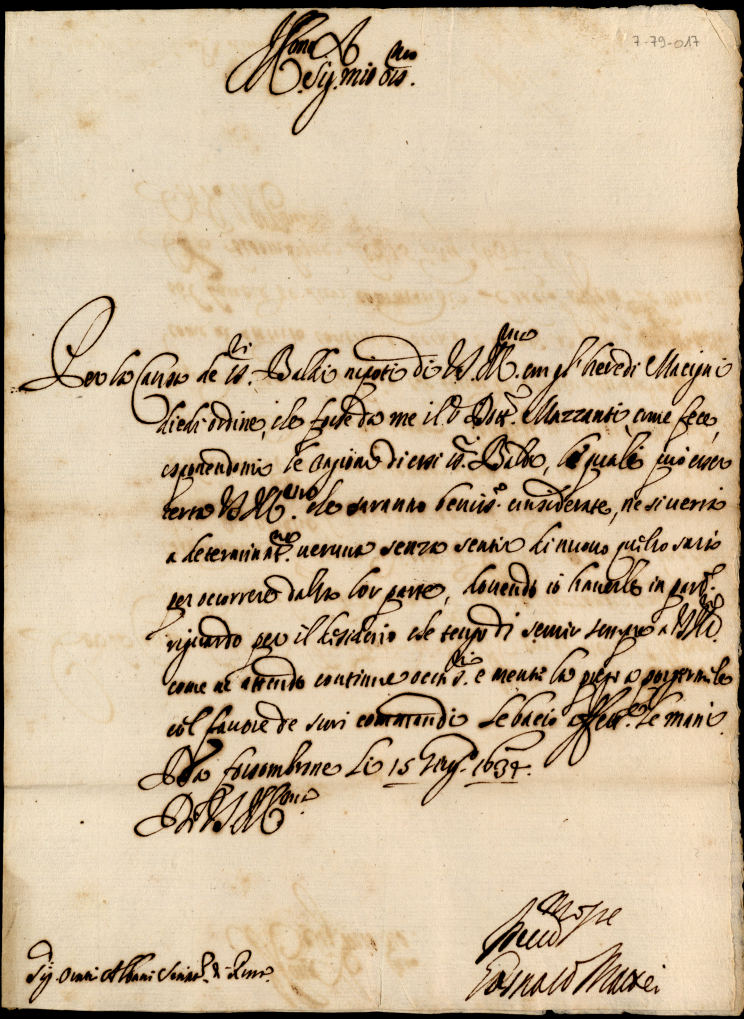 7-79-017
Sig. mio oss.mo
Per la Causa de ss.ri Baldi nipoti di V.S. Ill.ma con gl' heredi Macigni
diedi ordine, che fosse da me il Dott. Mazzanti, come fece,
esponendomi le ragioni di essi ss.ri Baldi, le quali può esser
certa V.S. Ill.ma che saranno beniss.o considerate, ne si verrà
a determinat.ne veruna senza sentir di nuovo quello sarà
per occorrere dalla lor parte, dovendo io haverle in part.
riguardo per il desiderio che tengo di servir sempre a V.S. Ill.
come ne attendo continue occas.ni e mentre la prego a porgermele
col favore de suoi commandi le bacio aff. le mani.
Da fossombrone li 15 1634.
Di V.S. Ill.ma
Sig. Albani Senat. di Roma